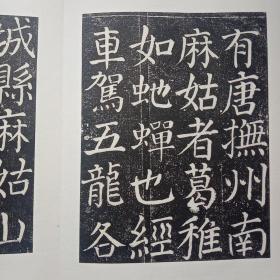 有唐撫州南
麻姑者葛稚
如虵蟬也經
車駕五龍各
城縣麻姑山